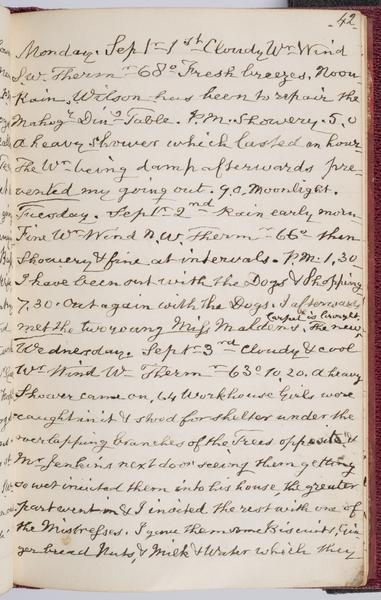 42
Monday. Sepr 1st Cloudy Wr Wind
S.W. Therm r 68° Fresh breezes, Noon
Rain, Wilson has been to repair the
Mahogy Ding Table. P.M. Showery. 5,0
a heavy shower which lasted an hour
The Wr being damp afterwards pre-
vented my going out. 9,0, Moonlight.
Tuesday. Septr 2nd Rain early morn
Fine Wr Wind N.W. Therm r 66° then
Showery & fine at intervals. P.M. 1,30
I have been out with the Dogs & Shopping
7,30. Out again with the Dogs. I afterwards
met the two young Miss Maldens, The new
Carpet is bought.
Wednesday. Septr 3rd Cloudy & cool
Wr Wind W. Therm r 63° 10,20, a heavy
Shower came on, 64 Workhouse Girls were
caught in it & stood for shelter under the
overlapping branches of the Trees opposite &
Mr Jenkins next door seeing them getting
so wet invited them into his house, the greater
part went in & I invited the rest with one of
the Mistresses. I gave them some Biscuits, Gin-
gerbread Nuts, & Milk & Water which they